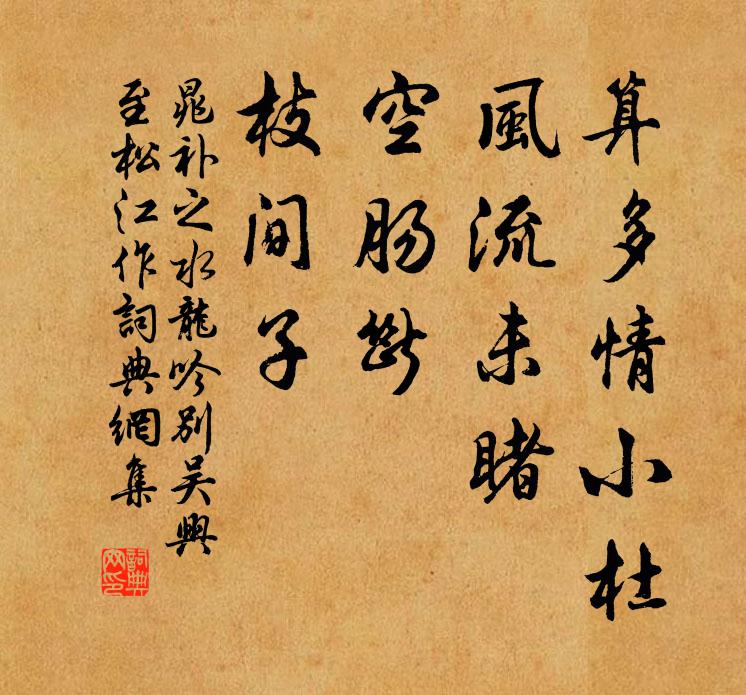 算多情小杜
風流未睹
空肠斷
枝间子
晁补之水龍吟别吴興
至松江作詞典網集
詞典网印